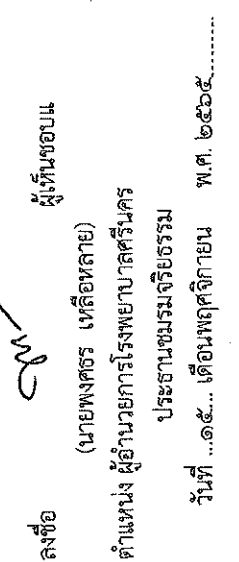 ลงชื่อ ผู้เห็นชอบแ
(นายพงศธร เหลือหลาย)
ตำแหน่ง ผู้อำนวยการโรงพยาบาลศรีนคร
ประธานชมรมจริยธรรม
วันที่ ...๑๕... เดือนพฤศจิกายน พ.ศ. ๒๕๖๕..........